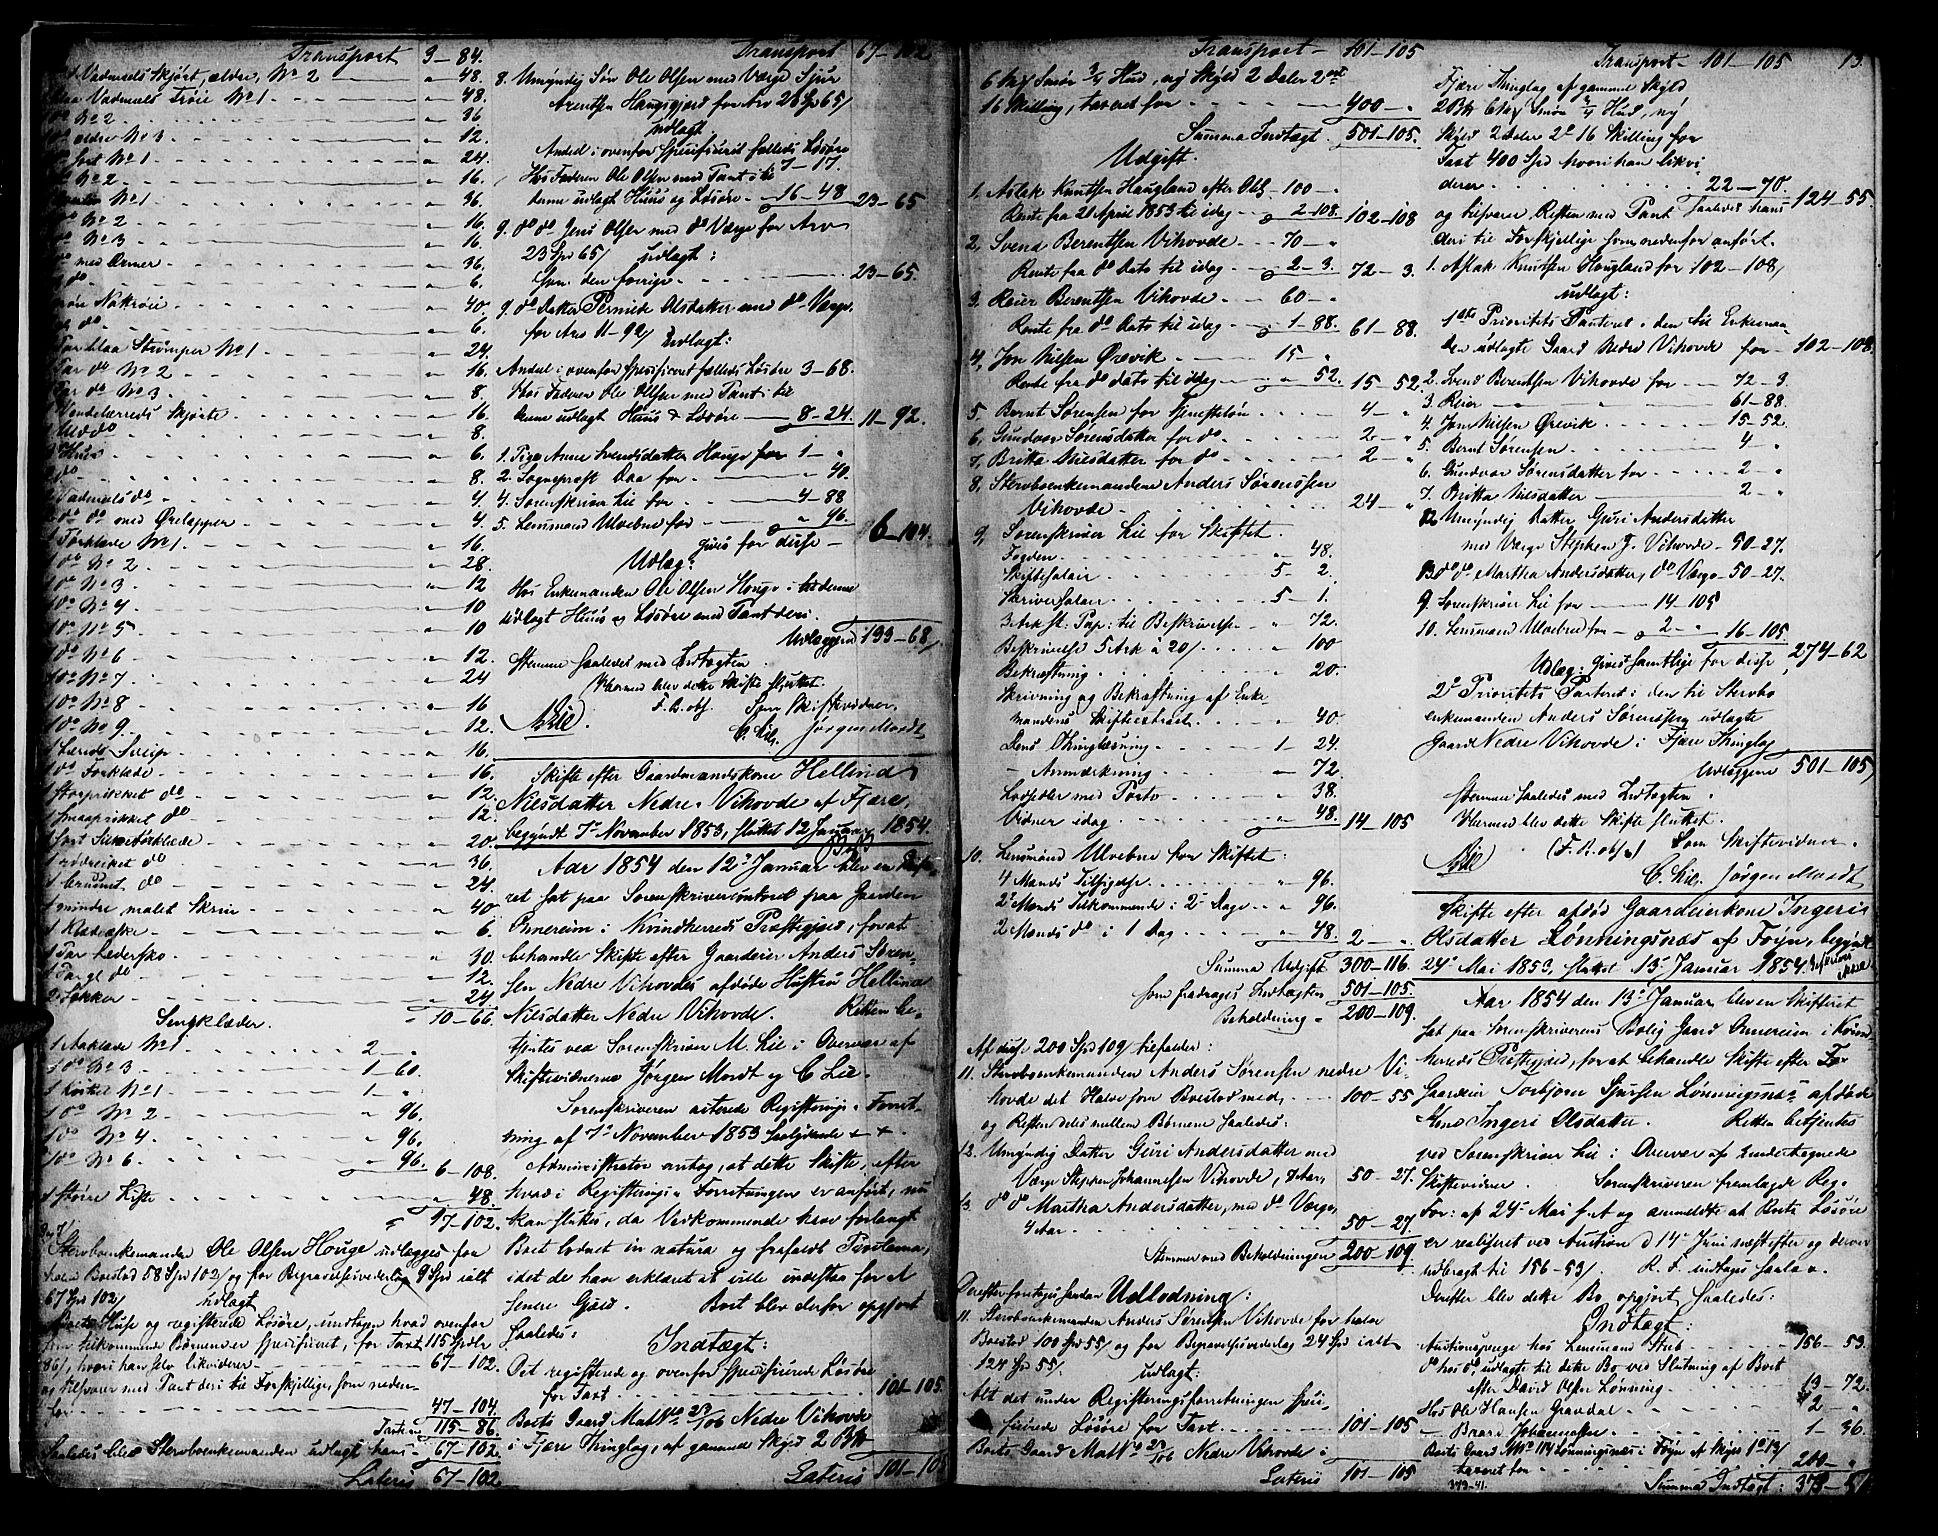 Transport 3-84.
Vadmels Skjørt, ældre, No 2 - 48.
blaa Vadmels Trøie No 1 - 48.
do No 2 - 36
do ældre No 3 - 12.
No 1 - 24.
No 2 - 16.
No 1 - 36.
do No 2 - 16.
do No 3 - 16.
do med Ærmer - 36.
do - 6.
Nattrøie - 40.
do - 6.
Par blaa Strømper No 1 - 24.
Par do No 2 - 16.
Par do No 3 - 8.
Skjorte - 16.
Uld do - 8.
Huer - 6.
do - 8.
Vadmels do - 4.
do do med Ørelapper - 4.
1 Forklæde No 1 - 16.
1 do No 2 - 28.
1 do No 3 - 12
1 do No 4 - 10
1 do No 5 - 10
1 do No 6 - 12.
1 do No 7 - 24
1 do No 8 - 16
1 do No 9 - 12.
1 Lærreds - 16.
1 do Forklæde - 16.
1 Storprikket do - 12.
1 Smaaprikket do - 12.
1 sort Silketørklæde - 20.
1 rødrosiet do - 36.
1 do - 24.
1 mindre malet Skrin - 40
1 Klædeæske - 6.
1 Par Lædersko - 30.
1 Par gl. do - 12.
2 Sokker - 24.
" 10-66.
Sengklæder.
1 Aaklæde No 1 2 - "
1 do No 3 1-60.
1 No 1 1 - "
1 do No 2 " 96.
1 do No 4 " 96.
1 do No 6 " 96.
6-108.
1 større Kiste " 48.
" 97-102.
Sterboenkemanden Ole Olsen Houge udlægges for
halve Boeslod 58 Spd 102/ og for Begravelsesvederlag 9 Spd ialt
67 Spd 102/ udlagt
Boets Huse og registrerede Løsøre, undtagen hvad ovenfor
som tilkommende Børnene er specificeret, for Taxt 115 Spdlr
86/, hvori han selv likviderer - 67-102.
og tilsvarer med Pant deri til Forskjellige, som neden-
for 47-104.
Taxten 115-86.
Saaledes blev Sterboenkemanden udlagt hans - 67-102.
Lateris 67-102.
Transport 67-102
8. Umyndig Søn Ole Olsen med Værge Sjur
Arentsen Haugsgjerd for Arv 23 Spd 65/
udlagt.
Andel i ovenfor specificeret fælleds Løsøre 7-17.
Hos Faderen Ole Olsen med Pant i de
denne udlagt Huus og Løsøre - 16-48 23-65
9. do do Jens Olsen med do Værge for Arv
23 Spd 65/ udlagt:
Som den forrige - 23-65.
9. do Datter Pernille Olsdatter med do Værge
for Arv 11-92/ Udlagt:
Andel i ovenfor specificeret fælleds Løsøre 3-68.
Hos Faderen Ole Olsen med Pant i de
denne udlagt Huus & Løsøre - 8-24. 11-92.
1. Pige Anne Svendsdatter Houge for 1 - "
2. Sogneprest Daa for - " 40.
4. Sorenskriver Lie for - 4-88
5. Lensmand Ulvebne for - " 96.
gives for disse - 6-104.
Udlæg:
Hos Enkemanden Ole Olsen Houge i de denne
udlagt Huus og Løsøre med Pant deri.
Udlæggene 133-68/
stemme saaledes med Indtægten.
Hermed blev dette Skifte sluttet.
MLie. F. R. obs. Som Skiftevidner,
C. Lie. Jørgen Mordt
Skifte efter Gaardmandskone Hellind
Nielsdatter Nedre Vikovde af Fjære,
begyndt 7de November 1853, sluttet 12 Januar 1854.
Aar 1854 den 12te Januar blev en Skifte-
ret sat paa Sorenskrivercontoiret paa Gaarden
Omnereim i Kvindherreds Præstegjeld, for at
behandle Skifte efter Gaardeier Anders Søren-
sen Nedre Vikovdes afdøde Hustru Hellind
Nielsdatter Nedre Vikovde. Retten be-
tjentes ved Sorenskriver M. Lie i Overvær af
Skiftevidnerne Jørgen Mordt og C Lie.
Sorenskriveren acterede Registrerings-Forret-
ning af 7de November 1853 saalydende + +.
Administrator antog, at dette Skifte, efter
hvad i Registrerings-Forretningen er anført, nu
kan sluttes, da Vedkommende have forlangt
Boet lodnet in natura og frafaldt Proclama,
idet de have erklæret at ville indestaa for al
senere Gjeld. Boet blev derfor opgjort
saaledes:
Indtægt:
Det registrerede og ovenfor specificerede Løsøre
for Taxt 101-105.
Boets Gaard Matr No 29/106 Nedre Vikovde
i Fjære Thinglag, af gammel Skyld 2 Bpd
Lateris 101-105
Transport - 101-105
6 Mrk Smør 3/4 Hud, ny Skyld 2 Daler 2 ort
16 Skilling, taxeret for 400 - "
Summa Indtægt 501-105.
Udgift.
1. Aslak Knutsen Haugland efter Obl. 100 - "
Rente fra 21 April 1853 til idag - " 2-108. 102-108
2. Svend Berentsen Vikovde - 70 - "
Rente fra do Dato til idag - " 2-3. 72-3.
3. Reier Berentsen Vikovde - 60 - "
Rente fra do Dato til idag - 1-88. 61-88.
4. Jon Nilsen Ørevik - 15 - "
Rente fra do dato til idag - " 52. 15-52
5. Bernt Sørensen for Tjenesteløn 4 - "
6. Gundvor Sørensdatter for do 2 - "
7. Britta Nilsdatter for do 2 - "
8. Sterboenkemanden Anders Sørenssen
Vikovde 24 - "
9. Sorenskriver Lie for Skiftet.
Fogden " 48.
Skiftesalair 5-2.
Skriversalair 5-1.
3 Ark st: Pap: til Beskrivelse " 72.
Beskrivelse 5 Ark à 20/ " 100
Bekræftning " 20.
Skrivning og Bekræftning af Enke-
mandens Skifteextract " 40
Dens Thinglæsning 1-24.
- Anmærkning " 72.
Lodsedler med Porto " 38.
Vidner idag " 48. 14-105
10. Lensmand Ulvebne for Skiftet:
4 Mænds Tilsigelse " 96.
2 Mænds Tilkommende i 2 Dage " 96.
2 Mænds do i 1 Dag " 48. 2 - "
Summa Udgift 300-116.
som fradrages Indtægten 501-105.
Beholdning - 200-109.
Af disse 200 Spd 109/ tilfalder:
11. Sterboenkemanden Anders Sørensen nedre Vi-
kovde det Halve som Boeslod med 100-55
og Resten deles mellem Børnene saaledes:
12. Umyndig Datter Guri Andersdatter med
Værge Stephen Johannesen Vikovde, 7 Aar, 50-27.
13. do do Martha Andersdatter, med do Værge,
4 Aar 50-27
Stemmer med Beholdningen 200-109.
Derefter foretoges saadan Udlodning:
11. Sterboenkemanden Anders Sørensen Vikovde for halve
Boeslod 100 Spd 55/ og for Begravelsesvederlag 24 Spd ialt
124 Spd 55/. udlagt:
Alt det under Registreringsforretningen speci-
ficerede Løsøre for Taxt 101-105
Boets Gaard Matr No 29/106 Nedre Vikovde i
Lateris 101-105
Transport - 101-105 13.
Fjære Thinglag af gammel Skyld
2 Bpd 6 Mrk Smør 3/4 Hud, ny
Skyld 2 Daler 2 o 16 Skilling for
Taxt 400 Spd hvori han likvi-
derer 22-70. 124-55.
og tilsvarer Resten med Pant saaledes hans
deri til Forskjellige som nedenfor anført.
1. Aslak Knutsen Haugland for 102-108/
udlagt:
1ste Prioritets Panteret i den til Enkeman-
den udlagte Gaard Nedre Vikovde for - 102-108.
2. Svend Berentsen Vikovde for 72-3
3. Reier - 61-88.
4. Jon Nilsen Ørevik 15-52.
5. Bernt Sørensen 4 - "
6. Gundvor Sørensdatter for 2 - "
7. Britta Nilsdatter 2 - "
12 Umyndig Datter Guri Andersdatter
med Værge Stephen J. Vikovde - 50-27.
13 do do Martha Andersdatter, do Værge 50-27.
9. Sorenskriver Lie for - 14-105
10. Lensmand Ulvebne for - 2 - " 16-105.
Udlæg gives samtlige for disse 274-62
2den Prioritets Panteret i den til Sterbo-
enkemanden Anders Sørenssen udlagte
Gaard Nedre Vikovde i Fjære Thinglag
Udlæggene 501-105/
stemme saaledes med Indtægten.
Hermed blev dette Skifte sluttet.
MLie (F. R. obs.) Som Skiftevidner.
C. Lie. Jørgen Mordt
Skifte efter afdød Gaardeierkone Ingeri
Olsdatter Lønningsnæs af Føyn, begyndt
24de Mai 1853, sluttet 13 Januar 1854.
Aar 1854 den 13de Januar blev en Skifteret
sat paa Sorenskriverens Bolig Gaard Omnereim i Kvind-
herreds Præstegjeld, for at behandle Skifte efter
Gaardeier Torbjørn Sjursen Lønningsnæs afdøde
Kone Ingeri Olsdatter. Retten betjentes
ved Sorenskriver Lie i Overvær af undertegnede
Skiftevidner. Sorenskriveren fremlagde Reg-
For: af 24de Mai f. A og anmeldte at Boets Løsøre
er realiseret ved Auction d 14de Juni næstefter og derved
udbragt til 156-53/. R. F. indtages saal. +.
Derefter blev dette Bo opgjort saaledes:
Indtægt:
Auctionspenge hos Lensmand Steb 156-53.
do hos do, udlagt til dette Bo ved Slutning af Boet
efter David Olsen Lønning 13-72.
Hos Ole Hansen Gravdal 2 - "
- Baar Johannessen 1-36.
Boets Gaard M No 114 Lønningsnæs i Føyn af Skyld 1 o 13/
taxeret for 200 - "
373-41. Summa Indtægt: 373-51